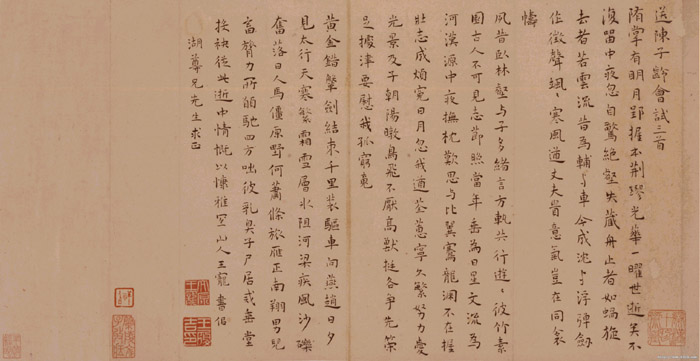 送陳子齡會試三首
隋掌有明月郢握本荆璆光華一曜世逝矣不
復留中夜忽自驚絕壑失藏舟止者如蝸旋
去者若雲流昔為輔與車今成沈與浮彈劔
作徵聲颯颯寒風遒丈夫貴意氣豈在同衾
幬
夙昔臥林壑与子多緒言方軌共行遊遊彼竹素
園古人不可見志節照當年垂為日星文流為
河漢源中夜撫枕歎思与比翼騫龍淵不在握
壯志成煩寃日月忽我遒荃蕙寧久繁努力愛
光景及子朝陽暾鳥飛不厭高獸挺各爭先策
足據津要慰我孤窮䰟
黃金錯鞶劍結束千里裝驅車向燕趙日夕
見太行天寒繁霜雪層冰阻河梁疾風沙礫
奮落日人馬僵原野何蕭條旅雁正南翔男兒
富膂力所的馳四方咄彼乳臭子尸居或垂堂
揆袂從此逝中情慨以慷雅宜山人王寵書似
湖尊兄先生求正